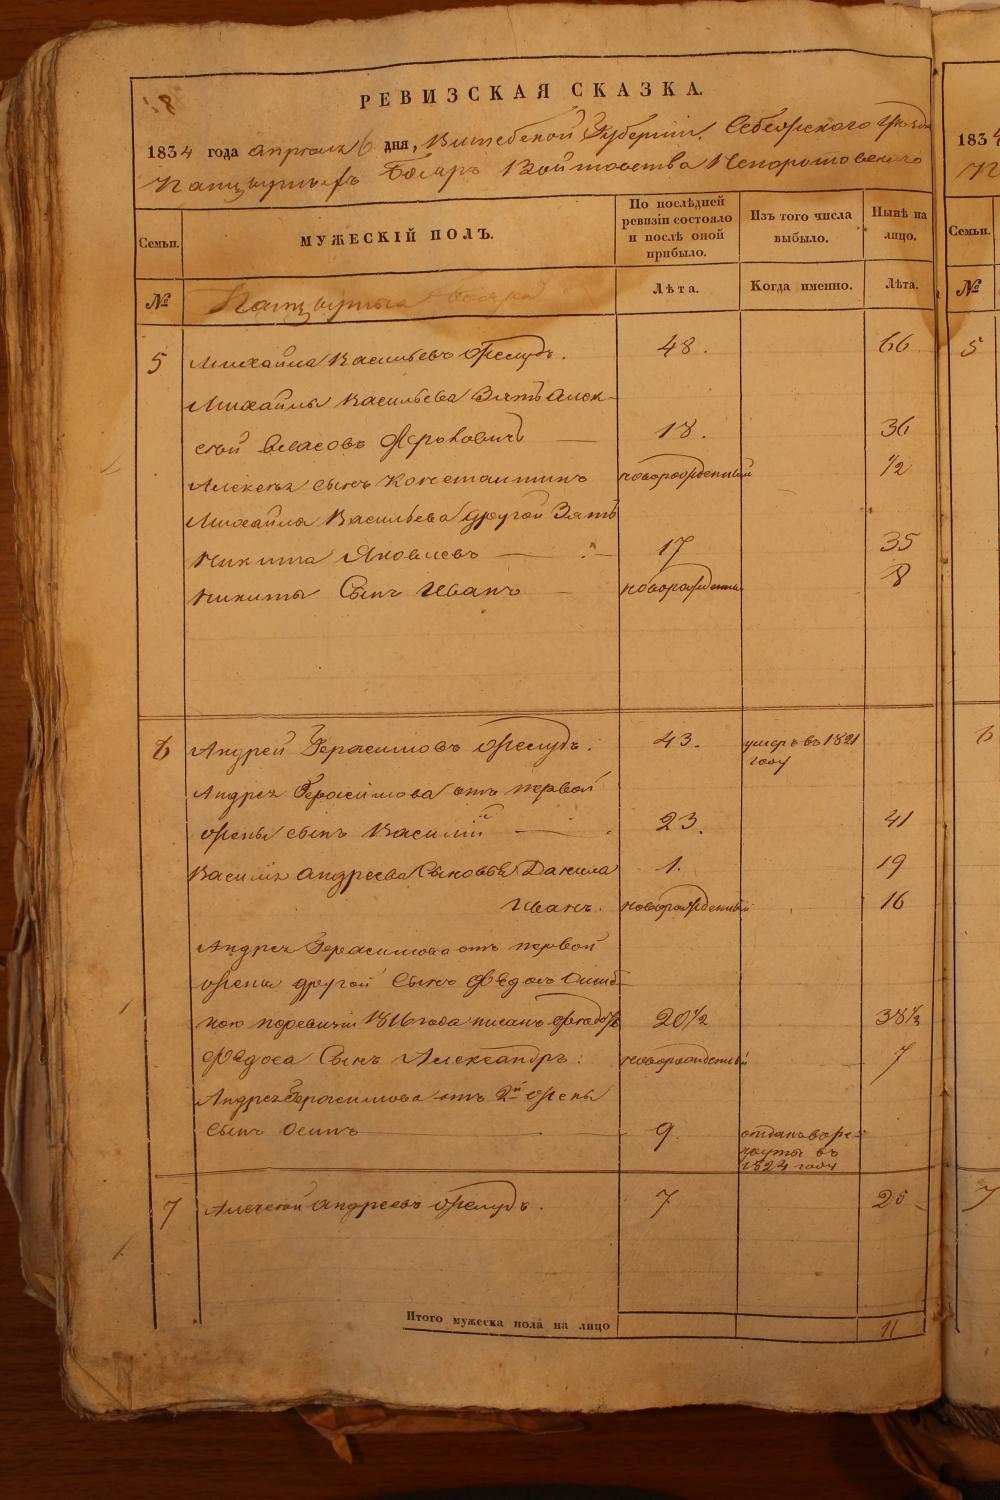 РЕВИЗСКАЯ СКАЗКА.
1834 года апреля 6 дня, Витебской Губернии, Себежского уезда
Панцырныхъ Бояръ Войтовства Непоротовскаго
Семьи.
МУЖЕСКІЙ ПОЛЪ.
По послѣдней ревизіи состояло и послѣ оной прибыло.
Изъ того числа выбыло.
Нынѣ на лицо.
№
Панцырные бояра
Лѣта.
Когда именно.
Лѣта.
5 Михайла Васильевъ 48. 66
Михайлы Васильева Зять Алек-
сѣй Власовъ 18. 36
Алексѣя сынъ Констаптинъ новорожденный ½
Михайла Васильева другой Зять
Никита Яковлевъ 17 35
Никиты Сынъ Иванъ новорожденны 8
6 Андрей Герасимовъ 43. умеръ въ 1821 году
Андрея Герасимова отъ первой
жены сынъ Василій 23. 41
Василія Андреева Сыновья Данила 1. 19
Иванъ. новорожденный 16
Андрея Герасимова отъ первой
жены другой Сынъ Ѳедосъ ошиб-
кою поревизіи 1816 года писанъ 20½ 38½
Ѳедоса Сынъ Александръ: новорожденный 7
Андрея Герасимова отъ 2й жены
Сынъ Осипъ 9. отданъ в рекруты въ 1824 году
7 Алексѣй Андреевъ 7 25
Итого мужеска пола на лицо 11
1834
Семьи.
№
5
6
7